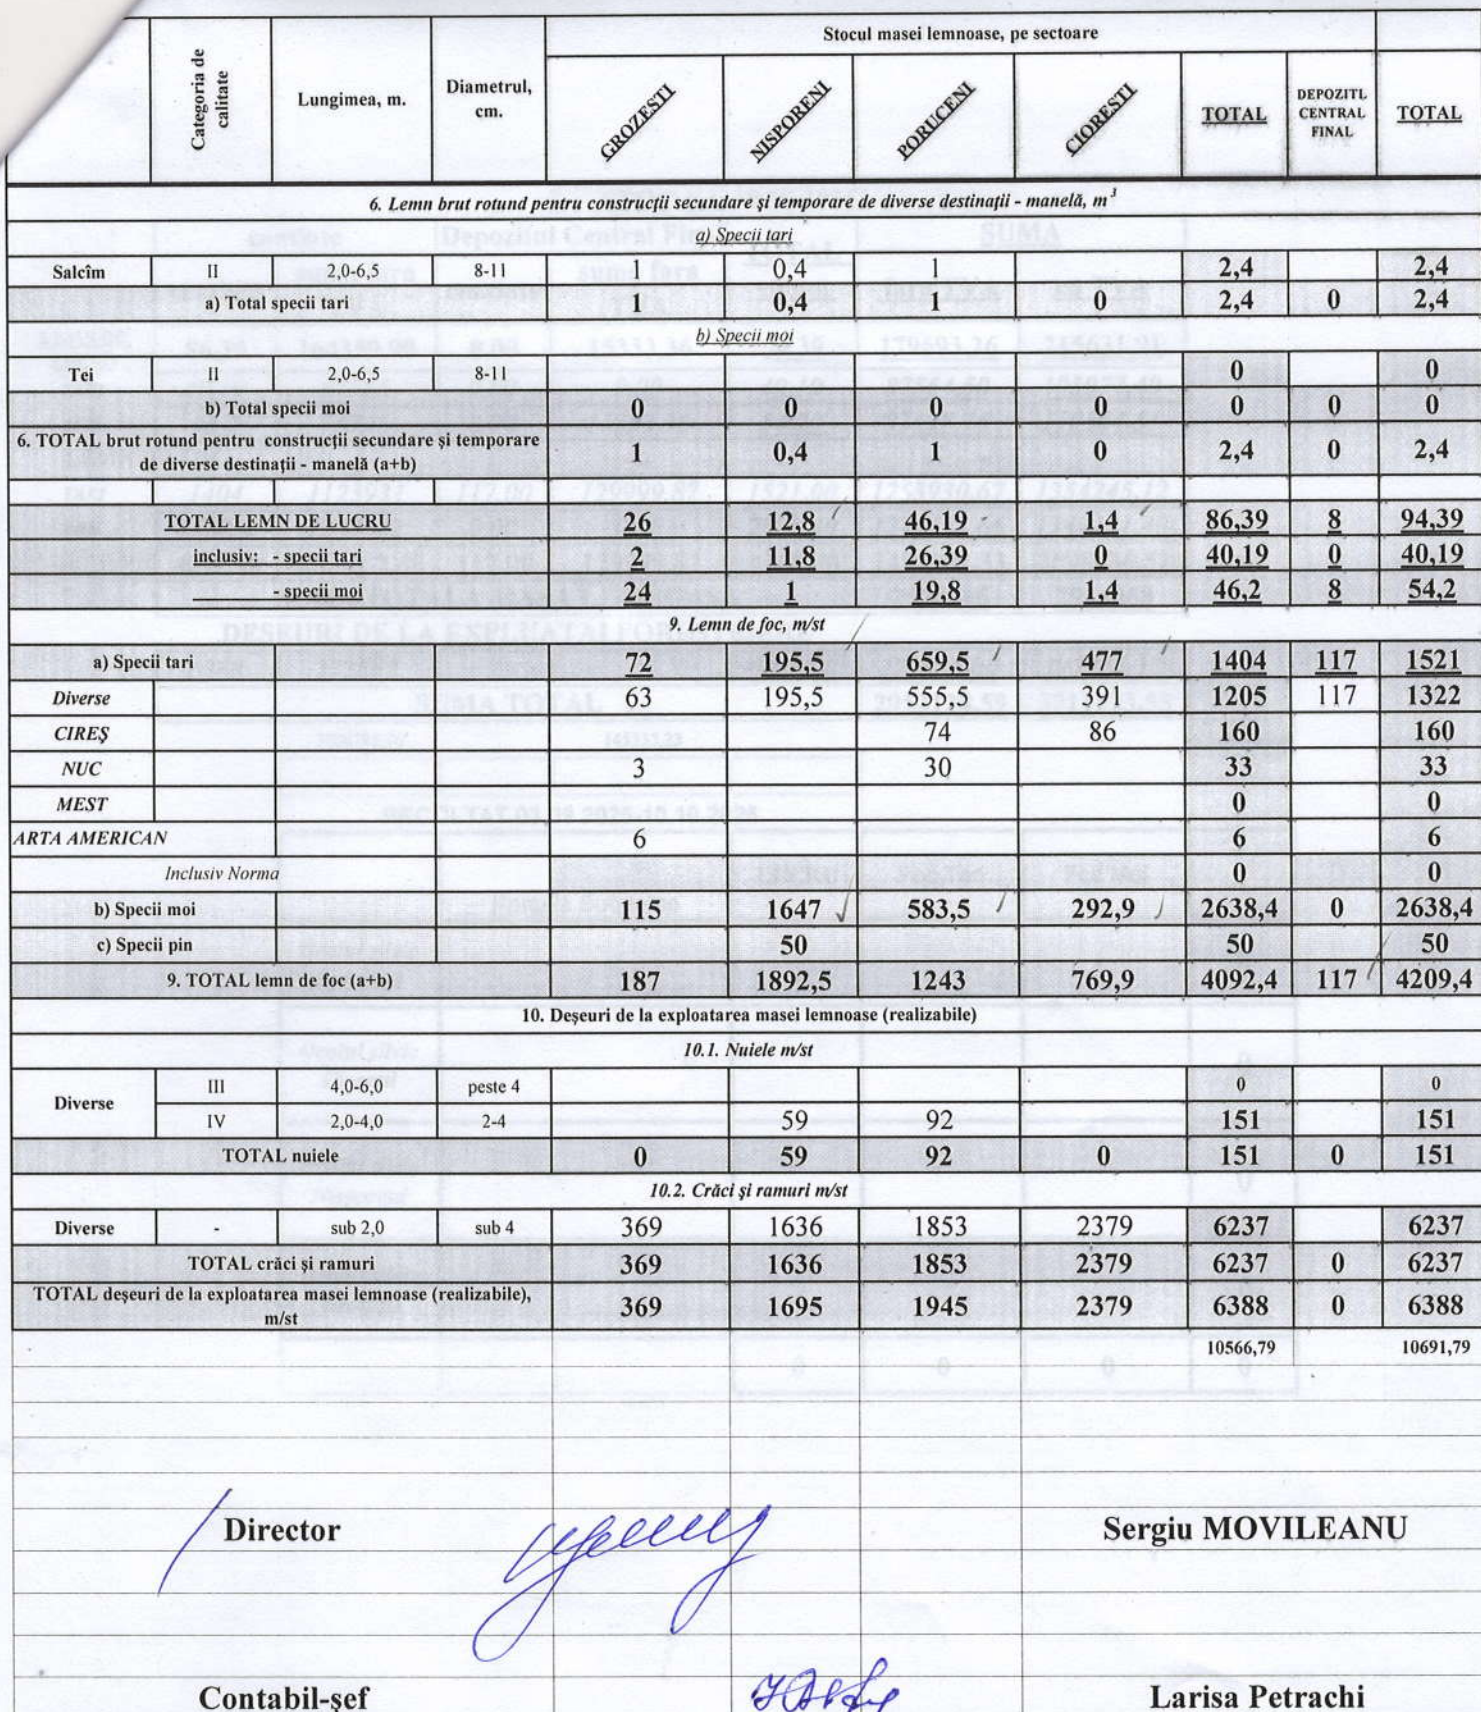 Stocul masei lemnoase, pe sectoare
Categoria de calitate Lungimea, m. Diametrul, cm. GROZESTI NISPORENI PORUCENI CIORESTI TOTAL DEPOZITL CENTRAL FINAL TOTAL
6. Lemn brut rotund pentru construcții secundare și temporare de diverse destinații - manelă, m³
a) Specii tari
Salcîm II 2,0-6,5 8-11 1 0,4 1 2,4 2,4
a) Total specii tari 1 0,4 1 0 2,4 0 2,4
b) Specii moi
Tei II 2,0-6,5 8-11 0 0
b) Total specii moi 0 0 0 0 0 0 0
6. TOTAL brut rotund pentru construcții secundare și temporare
de diverse destinații - manelă (a+b) 1 0,4 1 0 2,4 0 2,4
TOTAL LEMN DE LUCRU 26 12,8 46,19 1,4 86,39 8 94,39
inclusiv: - specii tari 2 11,8 26,39 0 40,19 0 40,19
- specii moi 24 1 19,8 1,4 46,2 8 54,2
9. Lemn de foc, m/st
a) Specii tari 72 195,5 659,5 477 1404 117 1521
Diverse 63 195,5 555,5 391 1205 117 1322
CIREȘ 74 86 160 160
NUC 3 30 33 33
MEST 0 0
ARTA AMERICAN 6 6 6
Inclusiv Norma 0 0
b) Specii moi 115 1647 583,5 292,9 2638,4 0 2638,4
c) Specii pin 50 50 50
9. TOTAL lemn de foc (a+b) 187 1892,5 1243 769,9 4092,4 117 4209,4
10. Deșeuri de la exploatarea masei lemnoase (realizabile)
10.1. Nuiele m/st
Diverse III 4,0-6,0 peste 4 0 0
IV 2,0-4,0 2-4 59 92 151 151
TOTAL nuiele 0 59 92 0 151 0 151
10.2. Crăci și ramuri m/st
Diverse - sub 2,0 sub 4 369 1636 1853 2379 6237 6237
TOTAL crăci și ramuri 369 1636 1853 2379 6237 0 6237
TOTAL deșeuri de la exploatarea masei lemnoase (realizabile),
m/st 369 1695 1945 2379 6388 0 6388
10566,79 10691,79
Director Sergiu MOVILEANU
Contabil-șef Larisa Petrachi